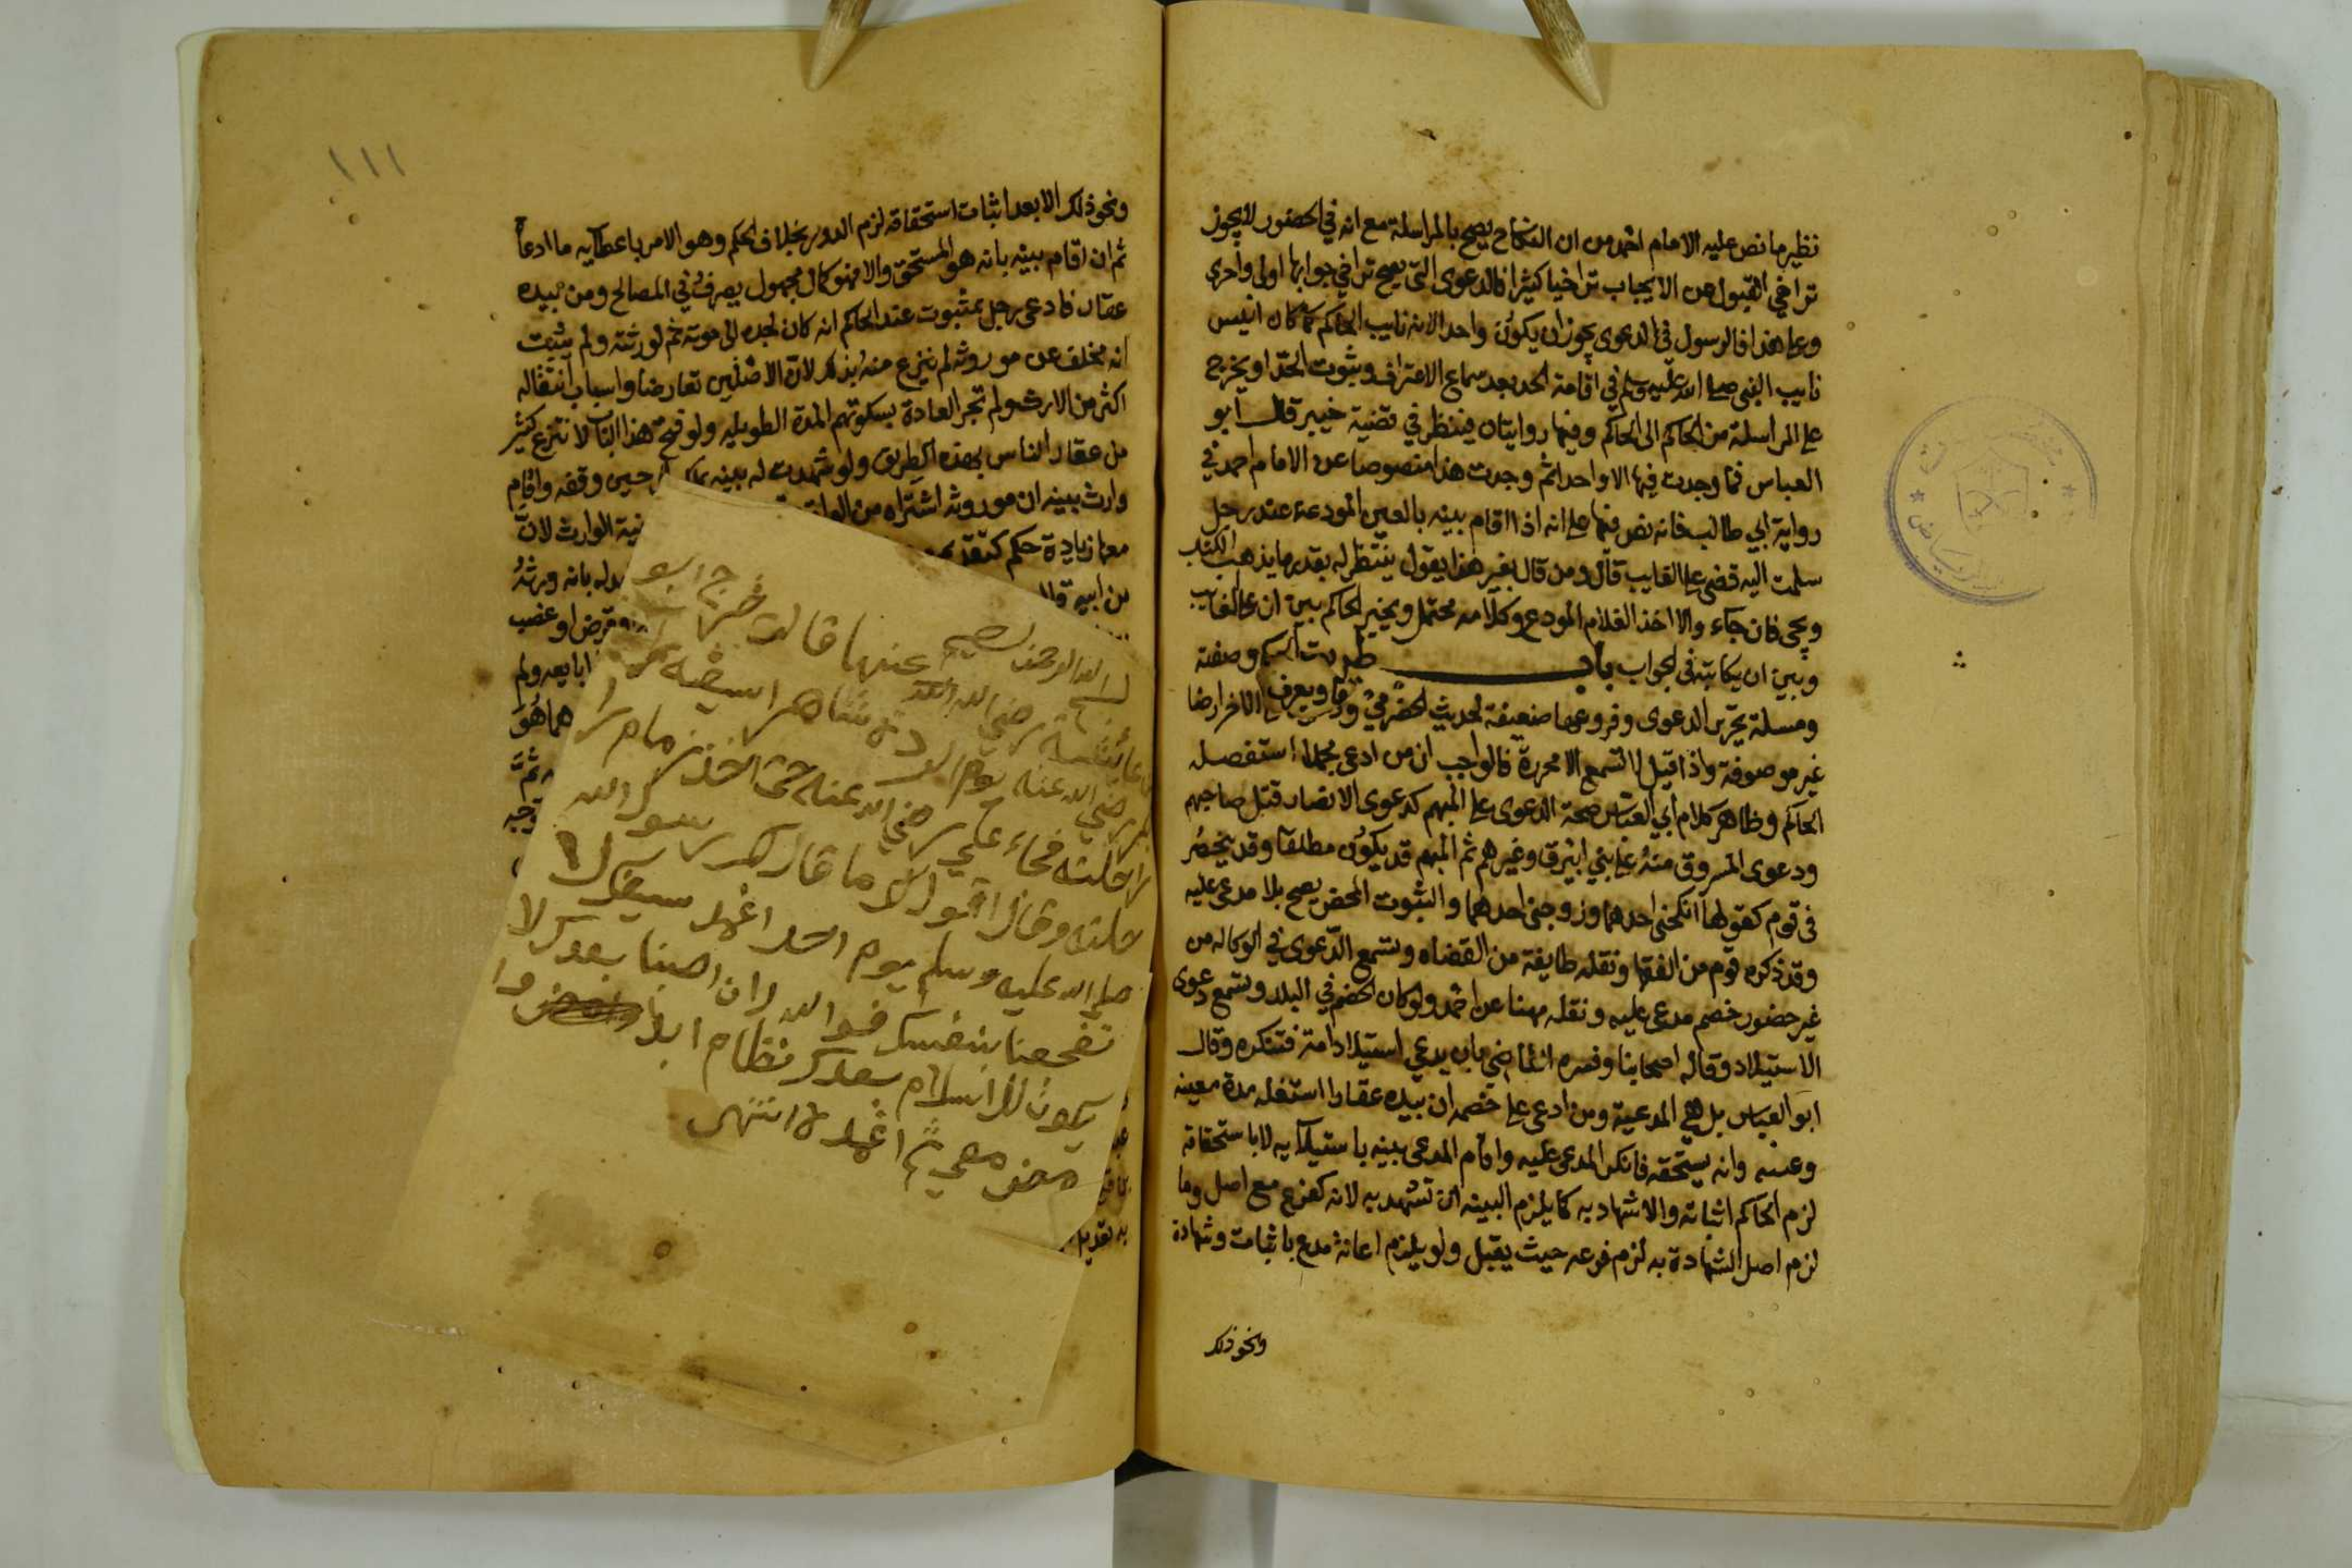 نظير ما نص عليه الامام احمد من ان النكاح يصح بالمراسلة مع انه في الحضور لا يجوز
تراخي القبول عن الايجاب تراخيا كثيرا فالدعوى التي يصح تراخي جوابها اولى واحرى
وعلى هذا فالرسول في الدعوى يجوز ان يكون واحدا لانه نايب الحاكم كما كان انيس
نايب النبي صلى الله عليه وسلم في اقامة الحد بعد سماع الاعتراف وثبوت الحد او يخرج
على المراسلة من الحاكم الى الحاكم وفيها روايتان فينظر في قضية خيبر قال ابو
العباس فما وجدت فيها الا واحدا ثم وجدت هذا منصوصا عن الامام احمد في
رواية ابي طالب فانه نص فيها على انه اذا اقام بينه بالعين المودعة عند رجل
سلمت اليه قضى على الغايب قال ومن قال بغير هذا يقول ينتظر له بقدر ما يذهب الكتاب
ويجى فان جاء والا اخذ الغلام المودع وكلامه محتمل ويخير الحاكم بين ان على الغايب
وبين ان يكاتبه في الجواب باب طريق الحكم وصفته
ومسلة تحرير الدعوى وفروعها ضعيفة لحديث الحضرمي
غير موصوفة واذا قيل لا تسمع الا محررة فالواجب ان من ادعى مجملا استفصله
الحاكم وظاهر كلام ابي العباس صحة الدعوى على المبهم كدعوى الانصار قتل صاحبهم
ودعوى المسروق منه على بني ابيرق وغيرهم ثم المبهم قد يكون مطلقا وقد ينحصر
في قوم كقولها انكحني احدهما وزوجني احدهما والثبوت المحض يصح بلا مدعى عليه
وقد ذكره قوم من الفقها ونقله طايفة من القضاه وتسمع الدعوى في الوكاله من
غير حضور خصم مدعى عليه ونقله مهنا عن احمد ولو كان الخصم في البلد وتسمع دعوى
الاستيلاد وقاله اصحابنا وفسره القاضي بان يدعي استيلاد امة فتنكره وقال
ابو العباس بل هي المدعية ومن ادعى على خصمه ان بيده عقارا استغله مدة معينه
وعينه وانه يستحقه فانكر المدعى عليه واقام المدعى بينه باستيلايه لا باستحقاقه
لزم الحاكم اثباته والاشهاد به كما يلزم البينه ان تشهد به لانه كفرع مع اصل وما
لزم اصل الشهادة به لزم فرعه حيث يقبل ولو يلزم اعانة مدع باثبات وشهادة
ونحو ذلك
١١١
ونحو ذلك الا بعد اثبات استحقاقه لزم الدور بخلاف الحكم وهو الامر باعطايه ما ادعاه
ثم ان اقام بينه بانه هو المستحق والا فهو كمال مجهول يصرف في المصالح ومن بيده
عقار فادعى رجل بمثبوت عند الحاكم انه كان لجده الى موته ثم لورثته ولم يثبت
انه مخلف عن موروثه لم ينزع منه بذلك لان الاصلين تعارضا واسباب انتقاله
اكثر من الارث ولم تجر العادة بسكوتهم المدة الطويله ولو فتح هذا الباب لا نتزع كثير
من عقار الناس بهذه الطريق ولو شهدت له بينه حين وقفه واقام
وارث بينه ان موروثه اشتراه من الواقف الوارث لان
معها زيادة علم كتقديم بانه ورثه
من ابيه قال او غصب
ابايعه ولم
هما هو
بسم الله الرحمن الرحيم
عائشة رضي الله عنها قالت خرج ابو
بكر رضي الله عنه يوم الردة شاهرا سيفه
راحلته فجاء علي رضي الله عنه حتى اخذ زمام
راحلته وقال اقول لك ما قال لك رسول الله
صلى الله عليه وسلم يوم احد اغمد سيفك لا
تفجعنا بنفسك فوالله لان اصبنا بعدك لا
يكون للاسلام بعدك نظام ابدا وا
مضى معي ثم اغمده انتهى